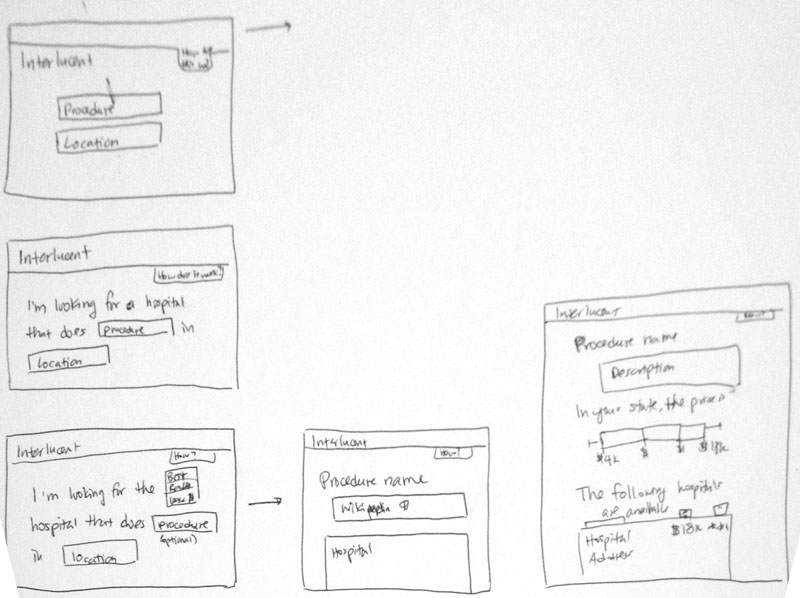 Interlucent
Procedure
Location
Interlucent
How does it work?
I'm looking for a hospital
that does procedure in
Location
Interlucent
How?
I'm looking for the
Best
hospital that does procedure
(optional)
in location
Interlucent
How?
Procedure name
Wikipedia
Hospital
Interlucent
How?
Procedure name
Description
In your state, the price is
$4k $ $ $18k
The following hospitals
are available
$18k
Hospital
Address